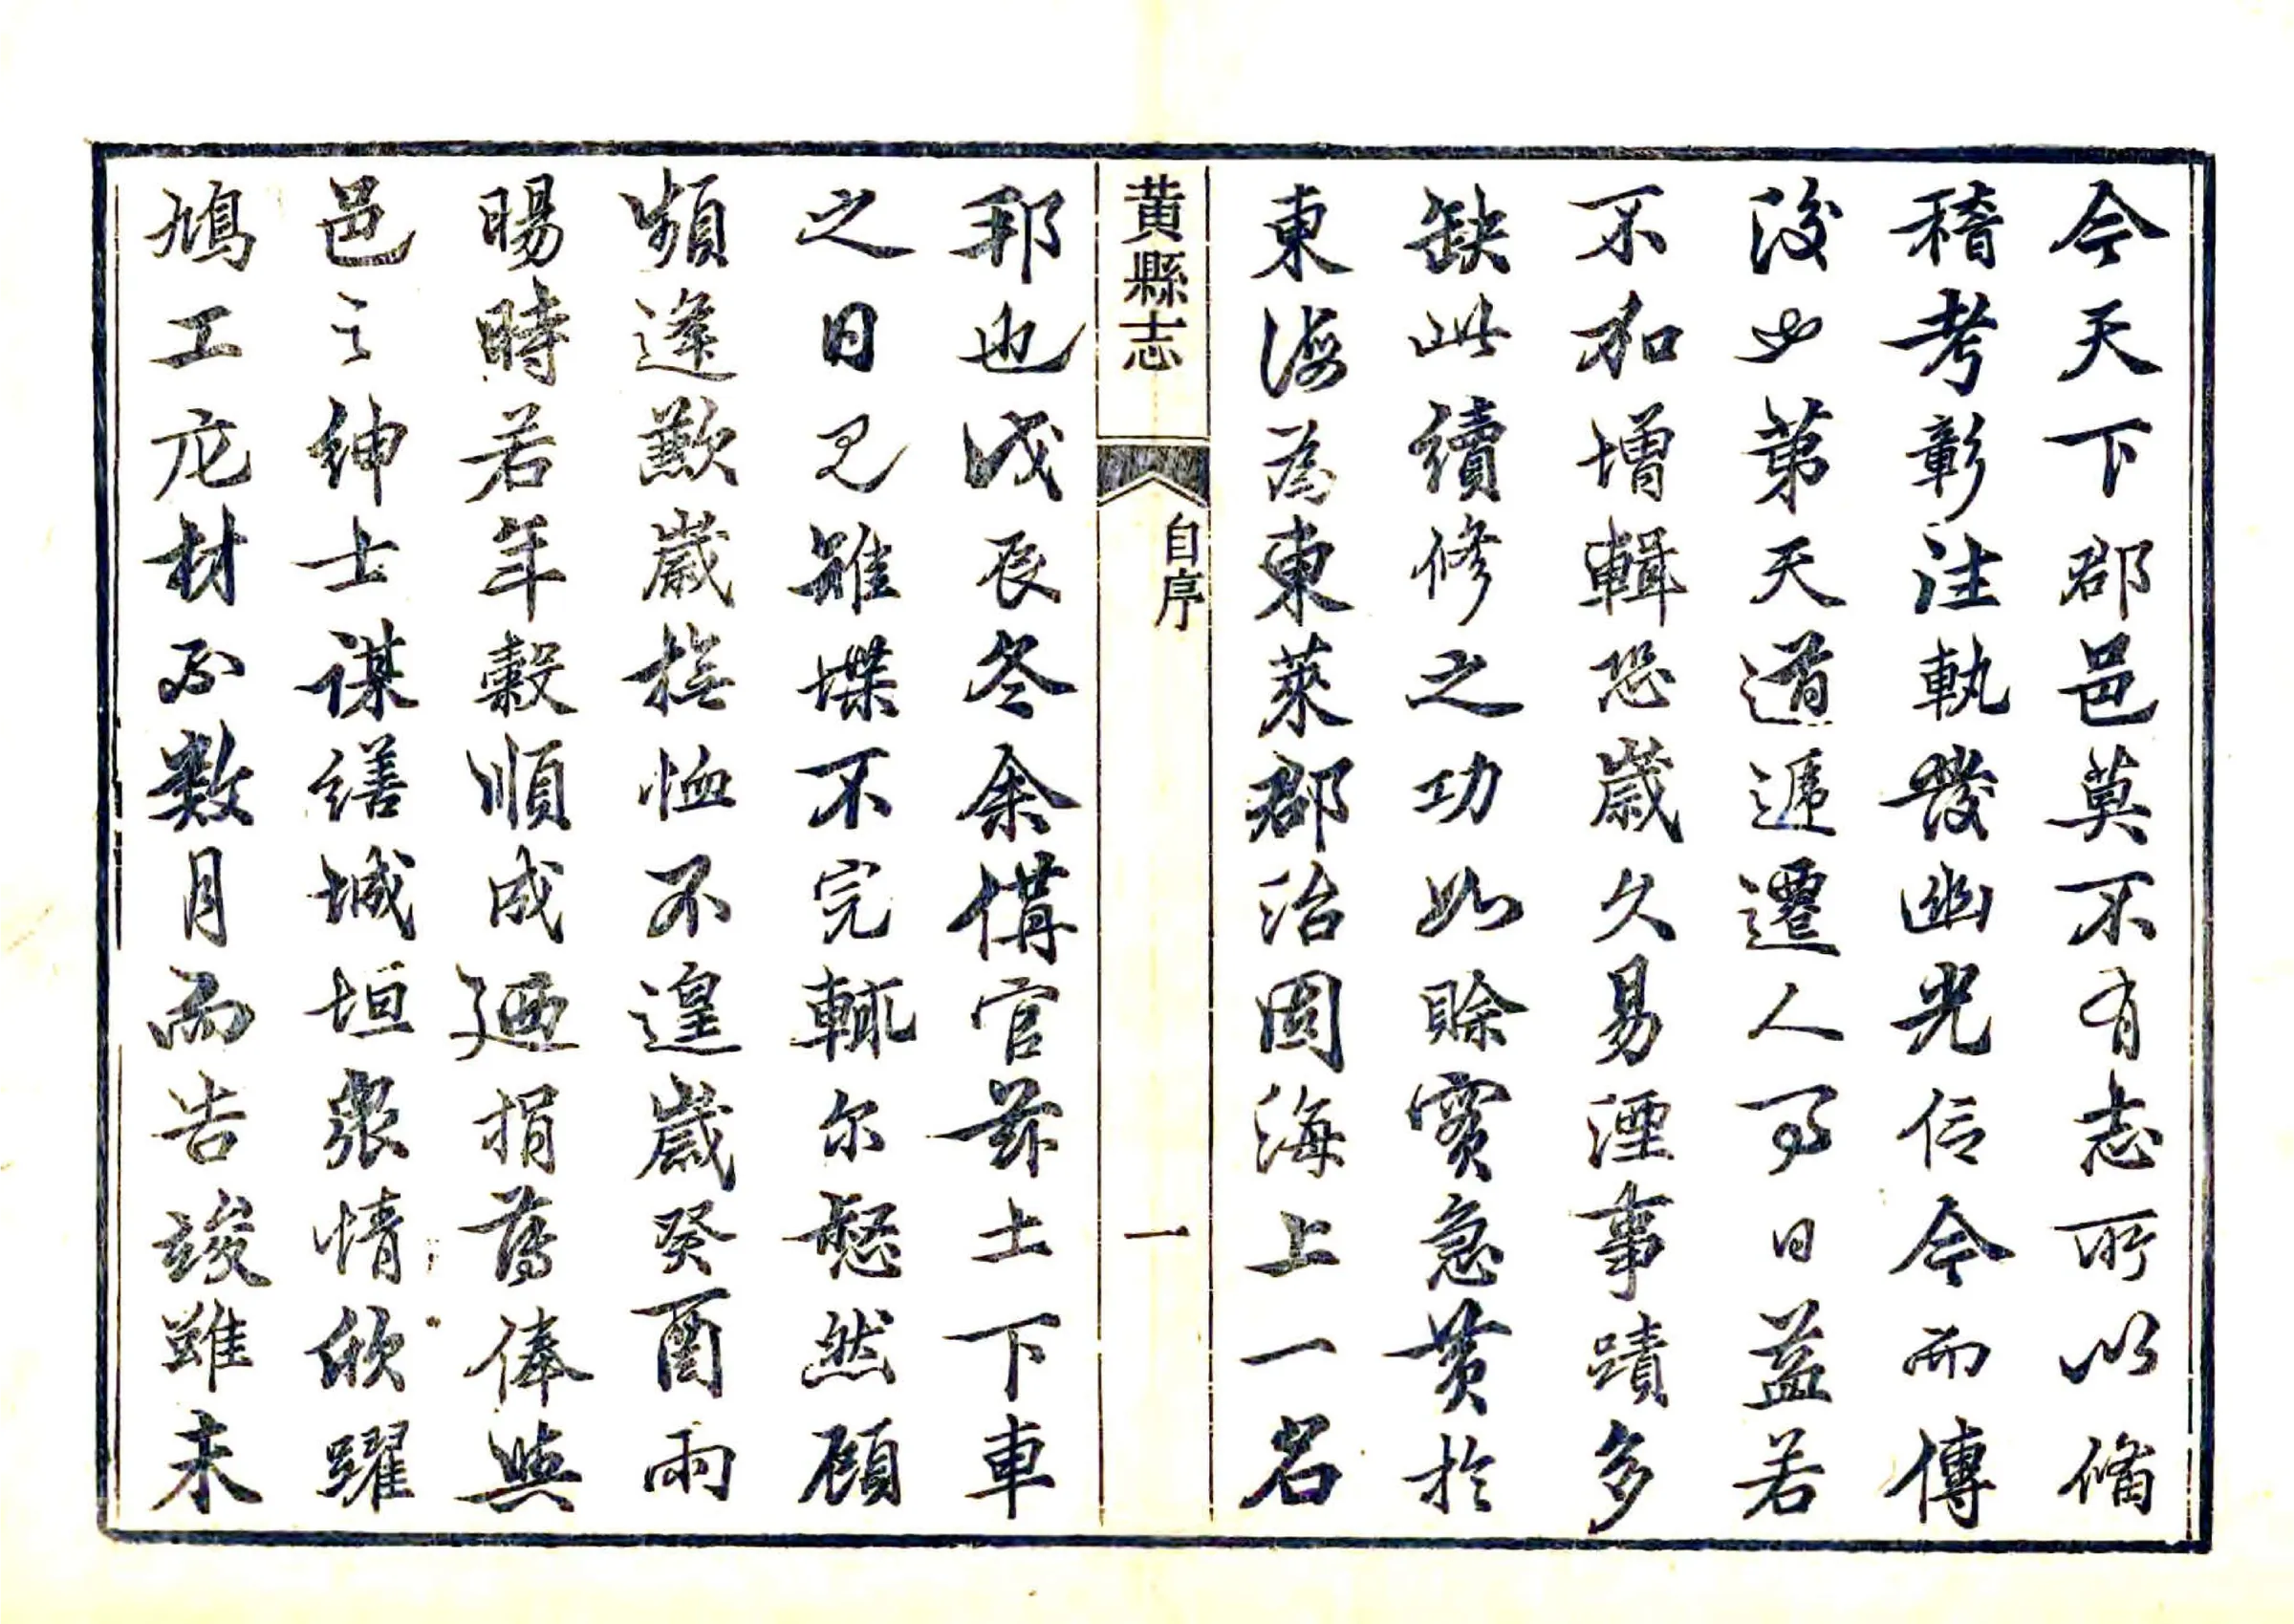 今天下郡邑莫不有志所以備
稽考彰法執發幽光信今而傳
後也第天道遞遷人事日益若
不加增輯恐歲久易湮事蹟多
缺此續修之功如賒實急黃於
東海為東萊郡治固海上一名
黃縣志
自序
一
邦也戊辰冬余備官茲土下車
之日見雉堞不完輒尔愁然顧
頻逢歉歲撫恤不遑歲癸酉雨
暘時若年穀順成迺捐薄俸與
邑之紳士謀繕城垣衆情欣躍
鳩工庀材不数月而告竣雖未